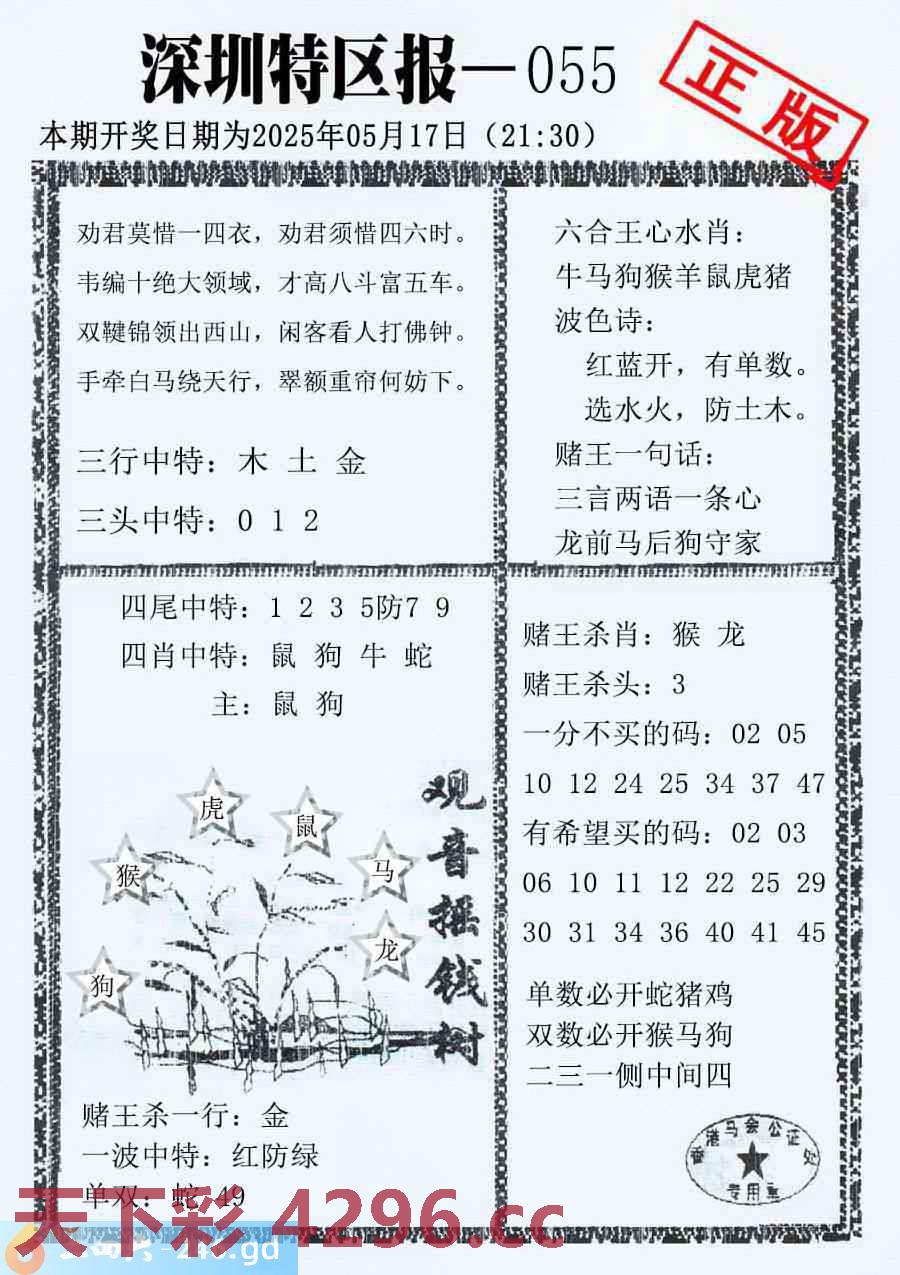 深圳特区报—055
正版
本期开奖日期为2025年05月17日（21:30）
劝君莫惜一四衣，劝君须惜四六时。
韦编十绝大领域，才高八斗富五车。
双鞬锦领出西山，闲客看人打佛钟。
手牵白马绕天行，翠额重帘何妨下。
三行中特：木 土 金
三头中特：0 1 2
六合王心水肖：
牛马狗猴羊鼠虎猪
波色诗：
红蓝开，有单数。
选水火，防土木。
赌王一句话：
三言两语一条心
龙前马后狗守家
四尾中特：1 2 3 5防7 9
四肖中特：鼠 狗 牛 蛇
主：鼠 狗
观音摇钱树
虎
鼠
猴
马
龙
狗
赌王杀一行：金
一波中特：红防绿
单双：蛇 49
赌王杀肖：猴 龙
赌王杀头：3
一分不买的码：02 05
10 12 24 25 34 37 47
有希望买的码：02 03
06 10 11 12 22 25 29
30 31 34 36 40 41 45
单数必开蛇猪鸡
双数必开猴马狗
二三一侧中间四
香港马会公证处
专用章
天下彩 4296.cc